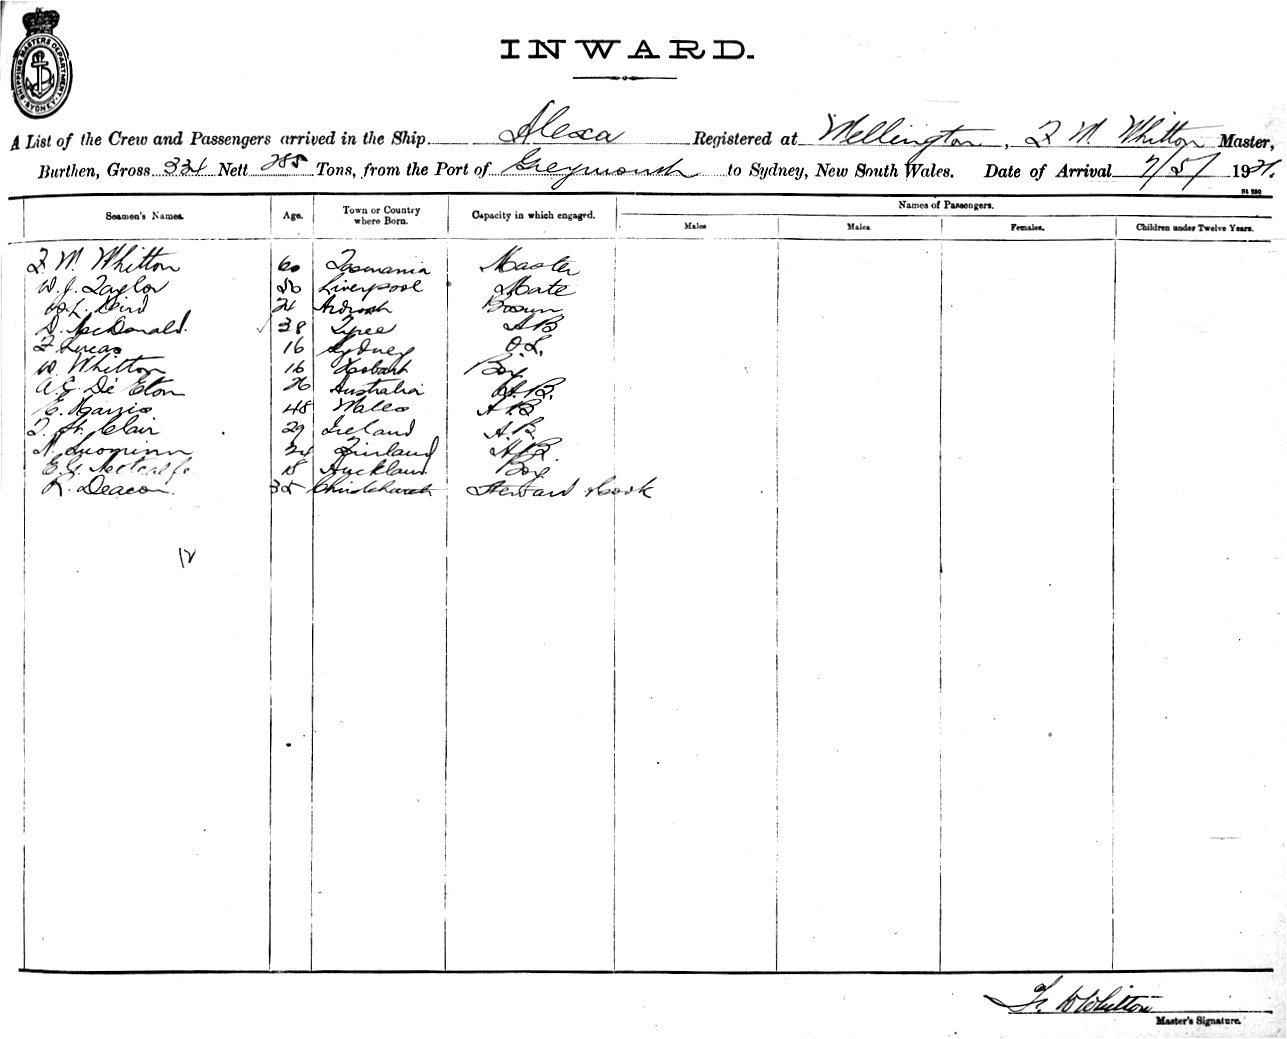 SHIPPING MASTERS DEPARTMENT SYDNEY
INWARD.
A List of the Crew and Passengers arrived in the Ship Alexa Registered at Wellington, F W. Whitton Master,
Burthen, Gross 334 Nett 285 Tons, from the Port of Greymouth to Sydney, New South Wales. Date of Arrival 7/5/ 1921.
St 250
Seamen's Names. Age. Town or Country where Born. Capacity in which engaged. Names of Passengers.
Males Males Females. Children under Twelve Years.
F. W. Whitton 60 Tasmania Master
W. J. Taylor 56 Liverpool Mate
L. 24 Bosun
D. MacDonald. 38 Tyree A B
F Lucas 16 Sydney O.S.
W. Whitton 16 Hobart Boy
A. G. De Eton 26 Australia A.B.
E. Harris 48 Wales A.B
T. St. Clair 29 Ireland A.B.
N. Luominn 24 Finland A.B.
E. G. Metcalfe 18 Auckland Boy
R. Deacon. 35 Christchurch Steward & Cook
12
F. W Whitton
Master's Signature.